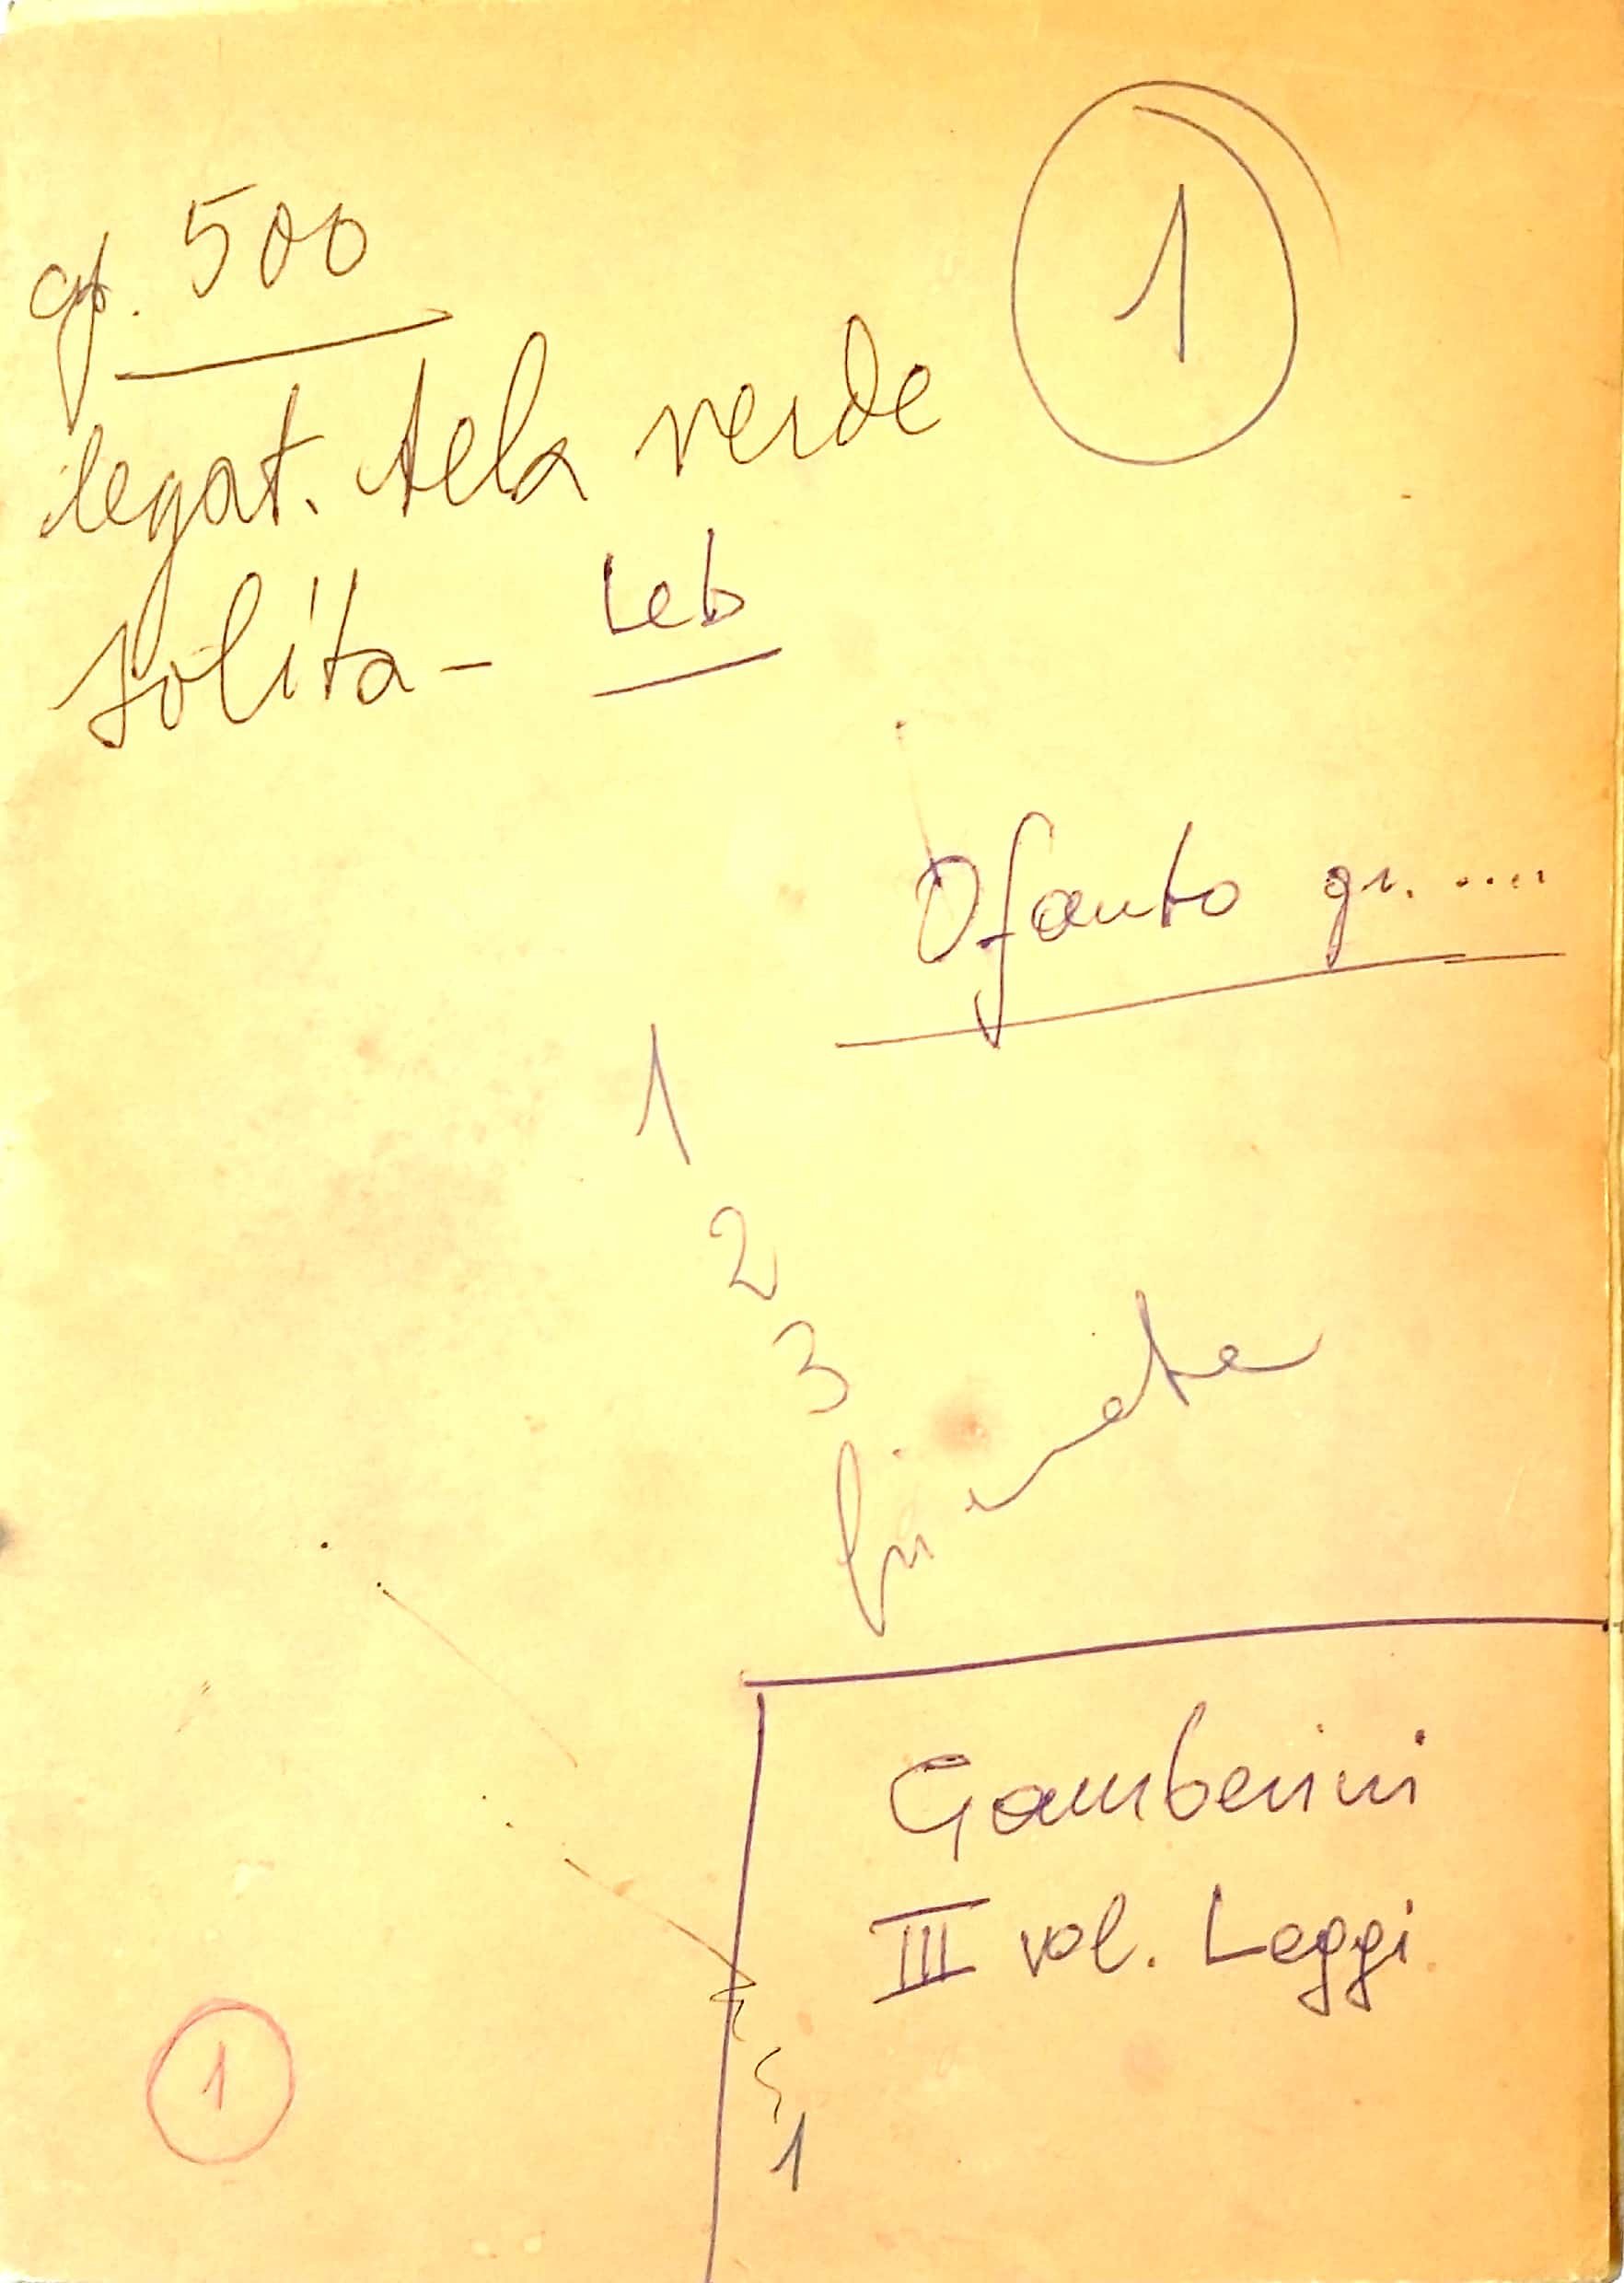 1
gf. 500
legat. tela verde
solita - Leb
Ofanto gr. ....
1
2
3
Gamberini
III vol. Leggi
1
1